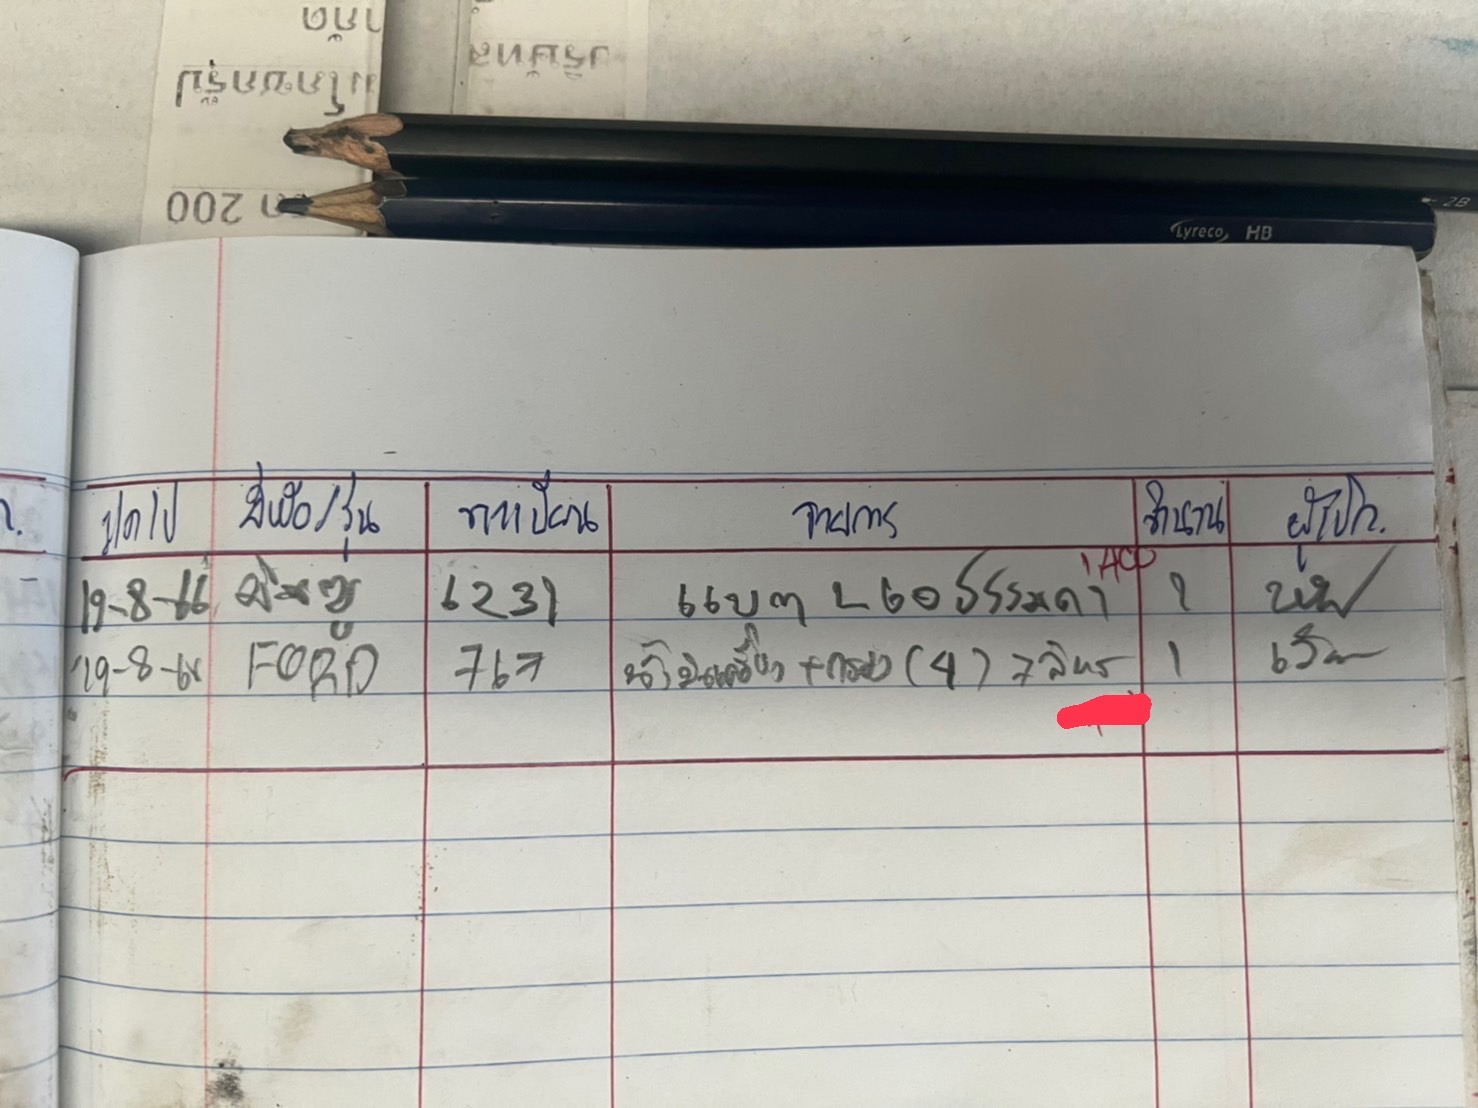 200
2B
Lyreco HB
ว/ด/ป ยี่ห้อ/รุ่น ทะเบียน รายการ จำนวน ผู้เบิก.
19-8-66 อีซูซุ 6231 แบต L 60 ธรรมดา 1
19-8-66 FORD 767 น้ำมันเครื่อง + กรอง (4) 7 ลิตร 1